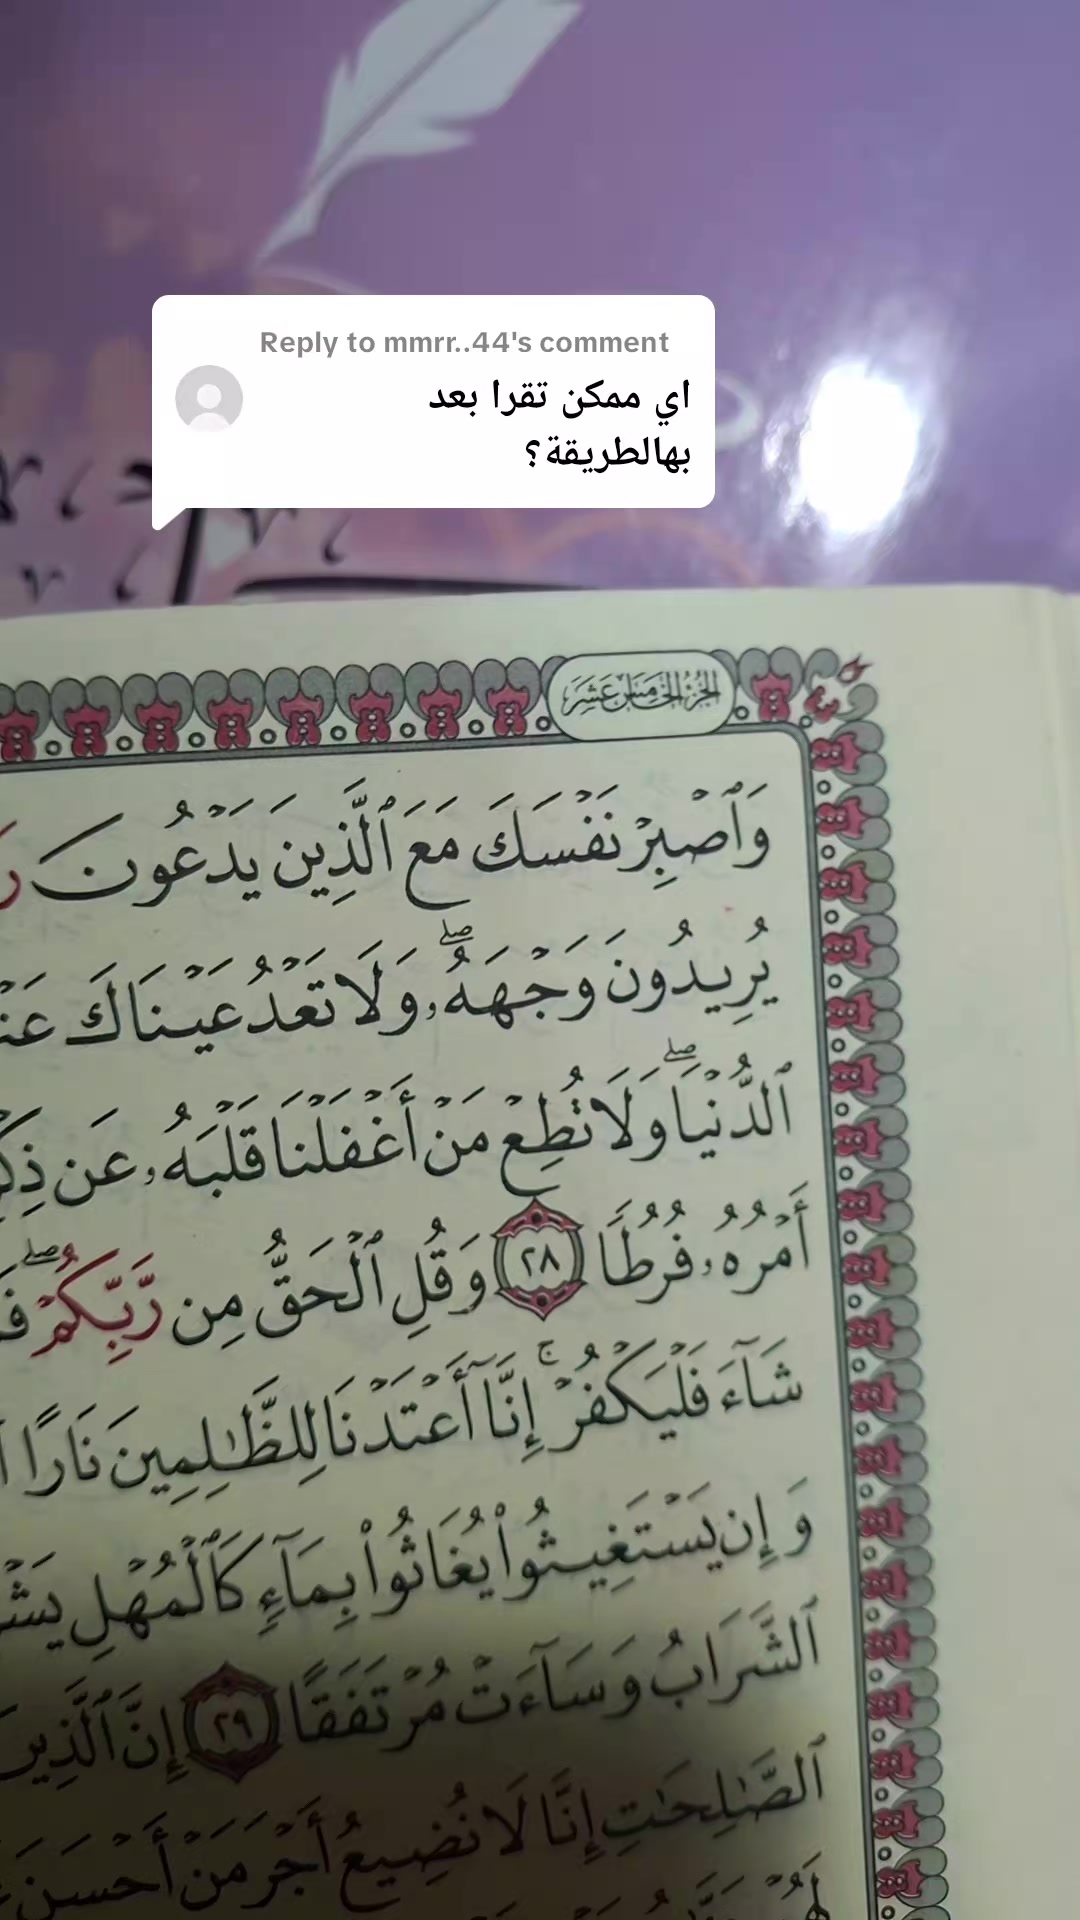 Reply to mmrr..44's comment
اي ممكن تقرا بعد
بهالطريقة؟
الجزء الخامس عشر
وَٱصۡبِرۡ نَفۡسَكَ مَعَ ٱلَّذِينَ يَدۡعُونَ
يُرِيدُونَ وَجۡهَهُۥۖ وَلَا تَعۡدُ عَيۡنَاكَ
ٱلدُّنۡيَاۖ وَلَا تُطِعۡ مَنۡ أَغۡفَلۡنَا قَلۡبَهُۥ عَن
أَمۡرُهُۥ فُرُطٗا ٢٨ وَقُلِ ٱلۡحَقُّ مِن رَّبِّكُمۡۖ
شَآءَ فَلۡيَكۡفُرۡۚ إِنَّآ أَعۡتَدۡنَا لِلظَّٰلِمِينَ نَارًا
وَإِن يَسۡتَغِيثُواْ يُغَاثُواْ بِمَآءٖ كَٱلۡمُهۡلِ
ٱلشَّرَابُ وَسَآءَتۡ مُرۡتَفَقًا ٢٩ إِنَّ ٱلَّذِينَ
ٱلصَّٰلِحَٰتِ إِنَّا لَا نُضِيعُ أَجۡرَ مَنۡ أَحۡسَنَ